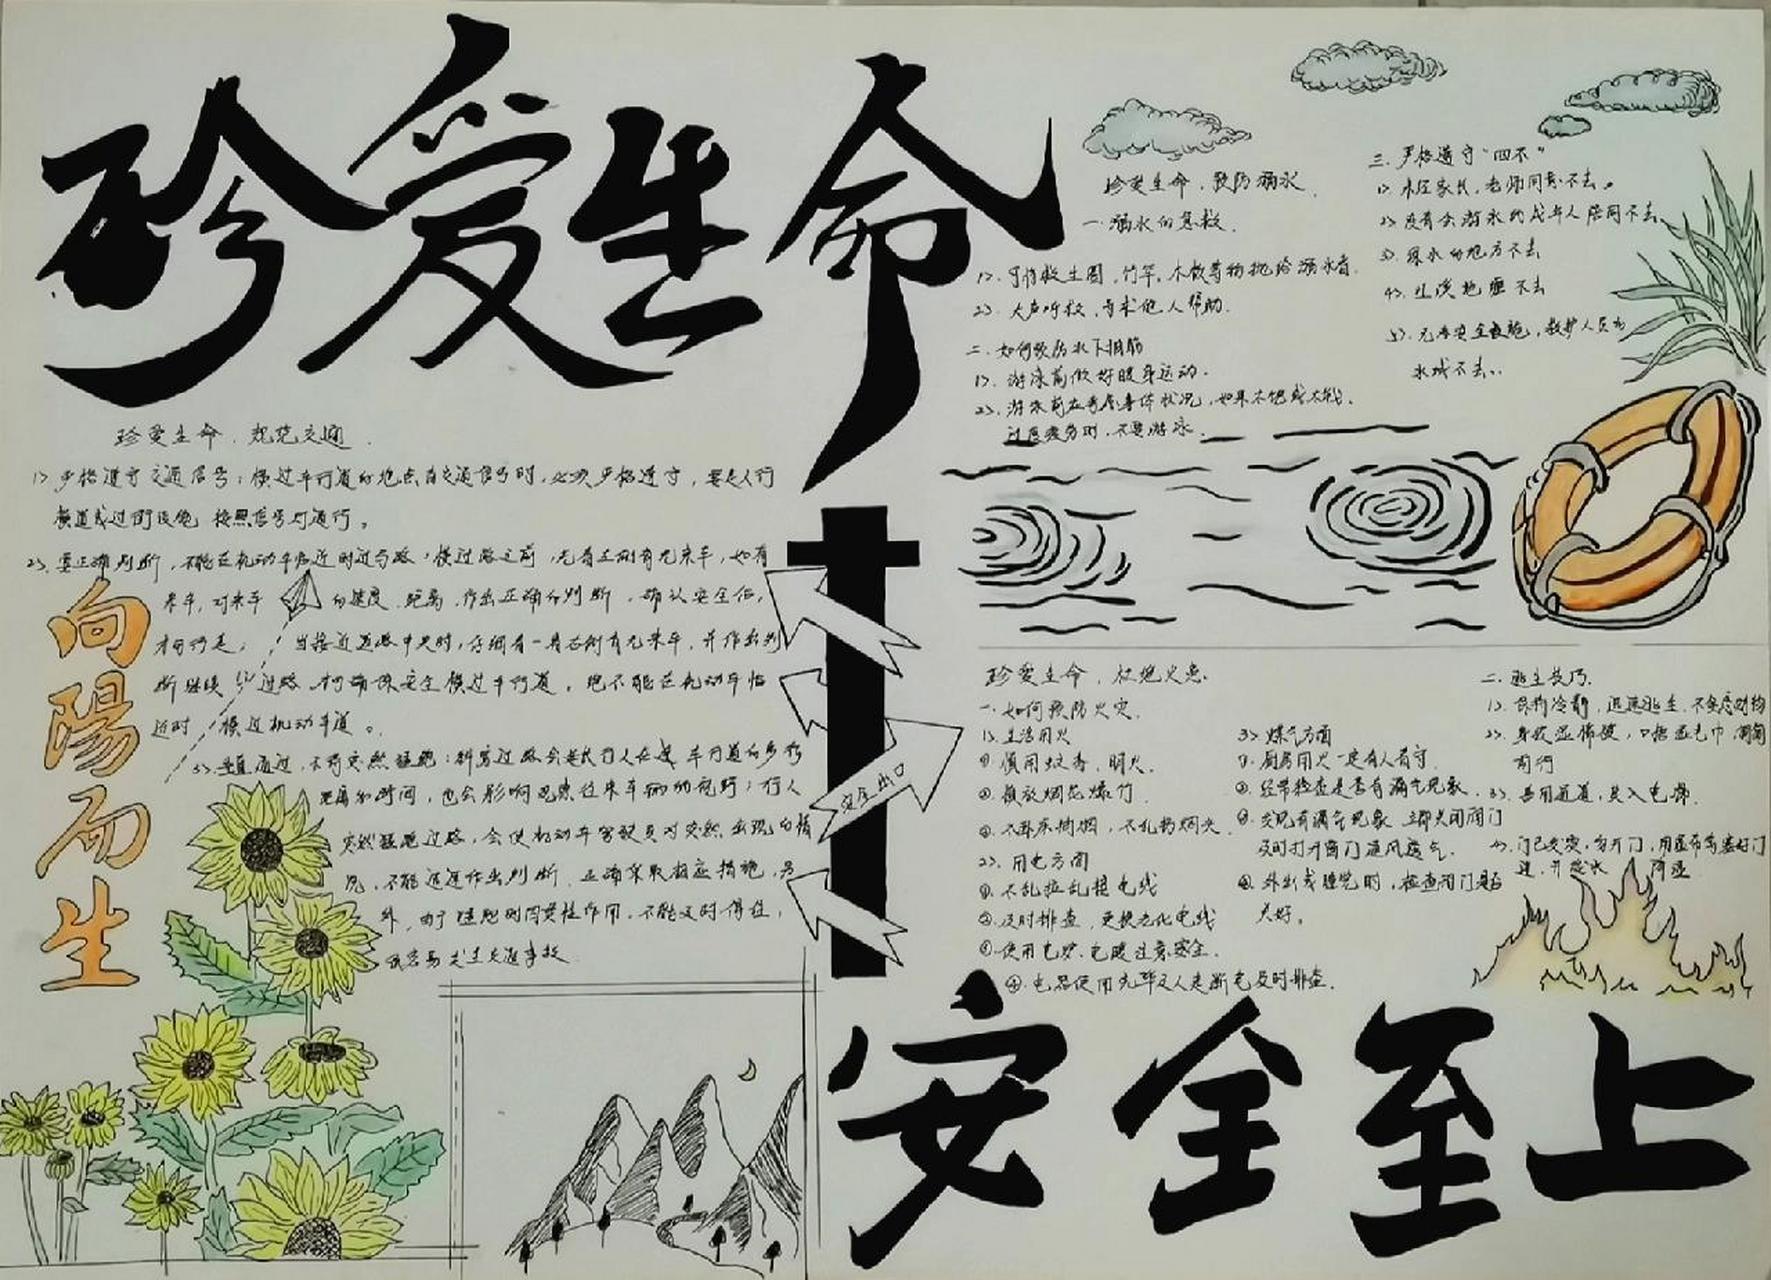 珍爱生命
珍爱生命，规范交通
1>严格遵守交通信号：横过车行道的地点有交通信号时，必须严格遵守，要走人行
横道或过街设施 按照信号灯通行。
2>.要正确判断，不能在机动车临近时过马路，横过路之前，先看左侧有无来车，如有
来车，对来车 的速度、距离，作出正确的判断，确认安全后，
才可行走； 当接近道路中央时，仔细看一看右侧有无来车，并作出判
断继续 过路，才可确保安全横过车行道。绝不能在机动车临
近时 横过机动车道。
3>.垂直通过，不得突然猛跑：斜穿过路会延长行人在 车行道的步行
距离和时间，也会影响观察往来车辆的视野；行人
突然猛跑过路，会使机动车驾驶员对突然出现的情
况，不能迅速作出判断、正确采取相应措施，另
外，由于猛跑时因惯性作用，不能及时停住，
很容易发生交通事故
向陽而生
安全出口
珍爱生命，预防溺水
一.溺水的急救
1>.可将救生圈，竹竿，木板等物抛给溺水者.
2>.大声呼救，寻求他人帮助.
二.如何预防水下抽筋
1>.游泳前做好暖身运动.
2>.游泳前应考虑身体状况，如果不饱或太饿.
过度疲劳时，不要游泳.
三.严格遵守“四不”
1>.未经家长，老师同意不去。
2>.没有会游泳的成年人陪同不去
3>.深水的地方不去
4>.江溪池塘不去
5>.无 安全设施，救护人员的
水域不去..
珍爱生命，杜绝火患.
一.如何预防火灾.
1>.生活用火
①慎用蚊香，明火.
②.慎放烟花爆竹.
③.不卧床抽烟，不乱扔烟头.
2>.用电方面
①.不乱拉乱接电线
②.及时排查，更换老化电线
③.使用电炉、电暖注意安全.
④.电器使用完毕及人走断电及时排查.
3>.煤气方面
①.厨房用火一定有人看守.
②.经常检查是否有漏气现象.
③.发现有漏气现象 立即关闭阀门
及时打开窗门通风透气.
④.外出或睡觉时，检查阀门是否
关好。
二.逃生技巧.
1>.保持冷静，迅速逃生，不贪恋财物
2>.身披湿棉被，口捂湿毛巾 匍匐
前行
3>.善用通道，莫入电梯.
4>.门已发烫，勿开门，用湿布等塞好门
缝，并泼水 降温
安全至上